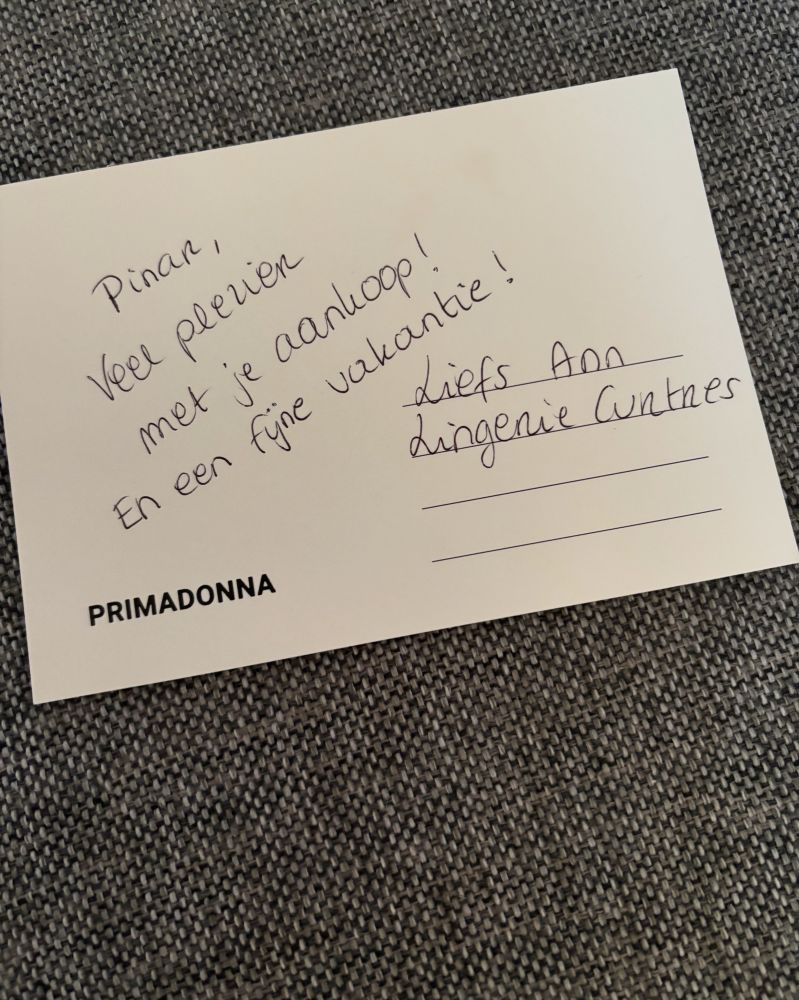 Pinar,
Veel plezier
met je aankoop!
En een fijne vakantie!
Liefs Ann
Lingerie
PRIMADONNA